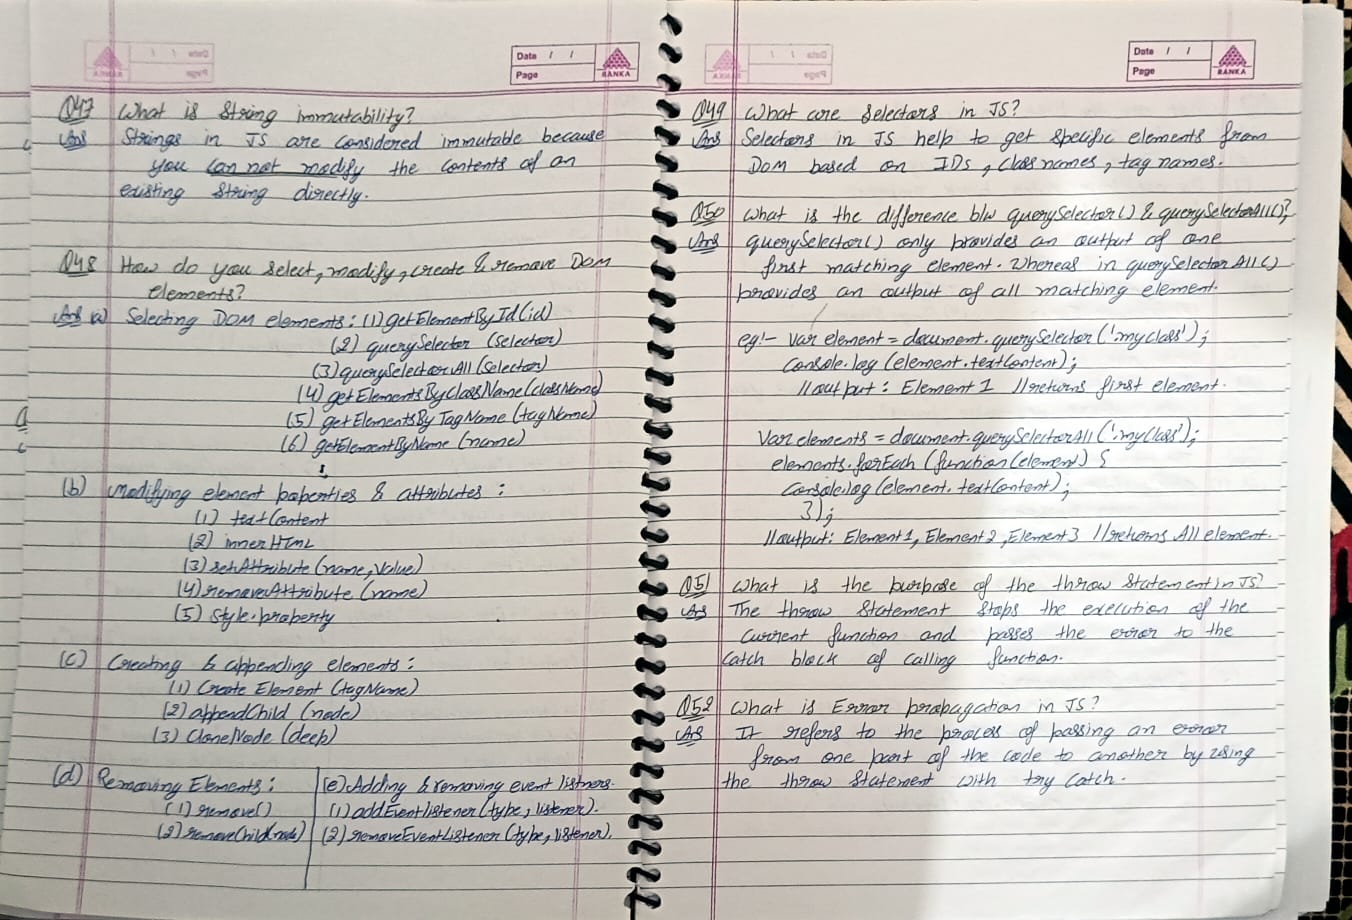 Date / /
Page
RANKA
Q47 What is String immutability?
Ans Strings in JS are considered immutable because
you can not modify the contents of an
existing string directly.
Q48 How do you select, modify, create & remove DOM
elements?
Ans (a) Selecting DOM elements: (1) getElementById(id)
(2) querySelector (selector)
(3) querySelectorAll (selector)
(4) getElementsByClassName (className)
(5) getElementsByTagName (tagName)
(6) getElementByName (name)
(b) Modifying element poperties & attributes :
(1) textContent
(2) innerHTML
(3) setAttribute (name, value)
(4) removeAttribute (name)
(5) style.property
(c) Creating & appending elements :
(1) Create Element (tagName)
(2) appendChild (node)
(3) cloneNode (deep)
(d) Removing Elements :
(1) remove()
(2) removeChild(node)
(e) Adding & removing event listners.
(1) addEventlistener (type, listener).
(2) removeEventListener (type, listener).
Date / /
Page
RANKA
Q49 What are selectors in JS?
Ans Selectors in JS help to get specific elements from
DOM based on IDs, class names, tag names.
Q50 What is the difference b/w querySelector() & querySelectorAll()?
Ans querySelector() only provides an output of one
first matching element. Whereas in querySelectorAll()
provides an output of all matching element.
eg:- Var element = document.querySelector ('.myclass');
Console.log (element.textContent);
//output : Element 1 //returns first element.
Var elements = document.querySelectorAll ('.myClass');
elements.forEach (function (element) {
Console.log (element.textContent);
});
//output: Element 1, Element 2, Element 3 //returns All element.
Q51 What is the purpose of the throw statement in JS?
Ans The throw statement stops the execution of the
current function and passes the error to the
catch block of calling function.
Q52 What is Error propagation in JS?
Ans It refers to the process of passing an error
from one part of the code to another by using
the throw statement with try catch.